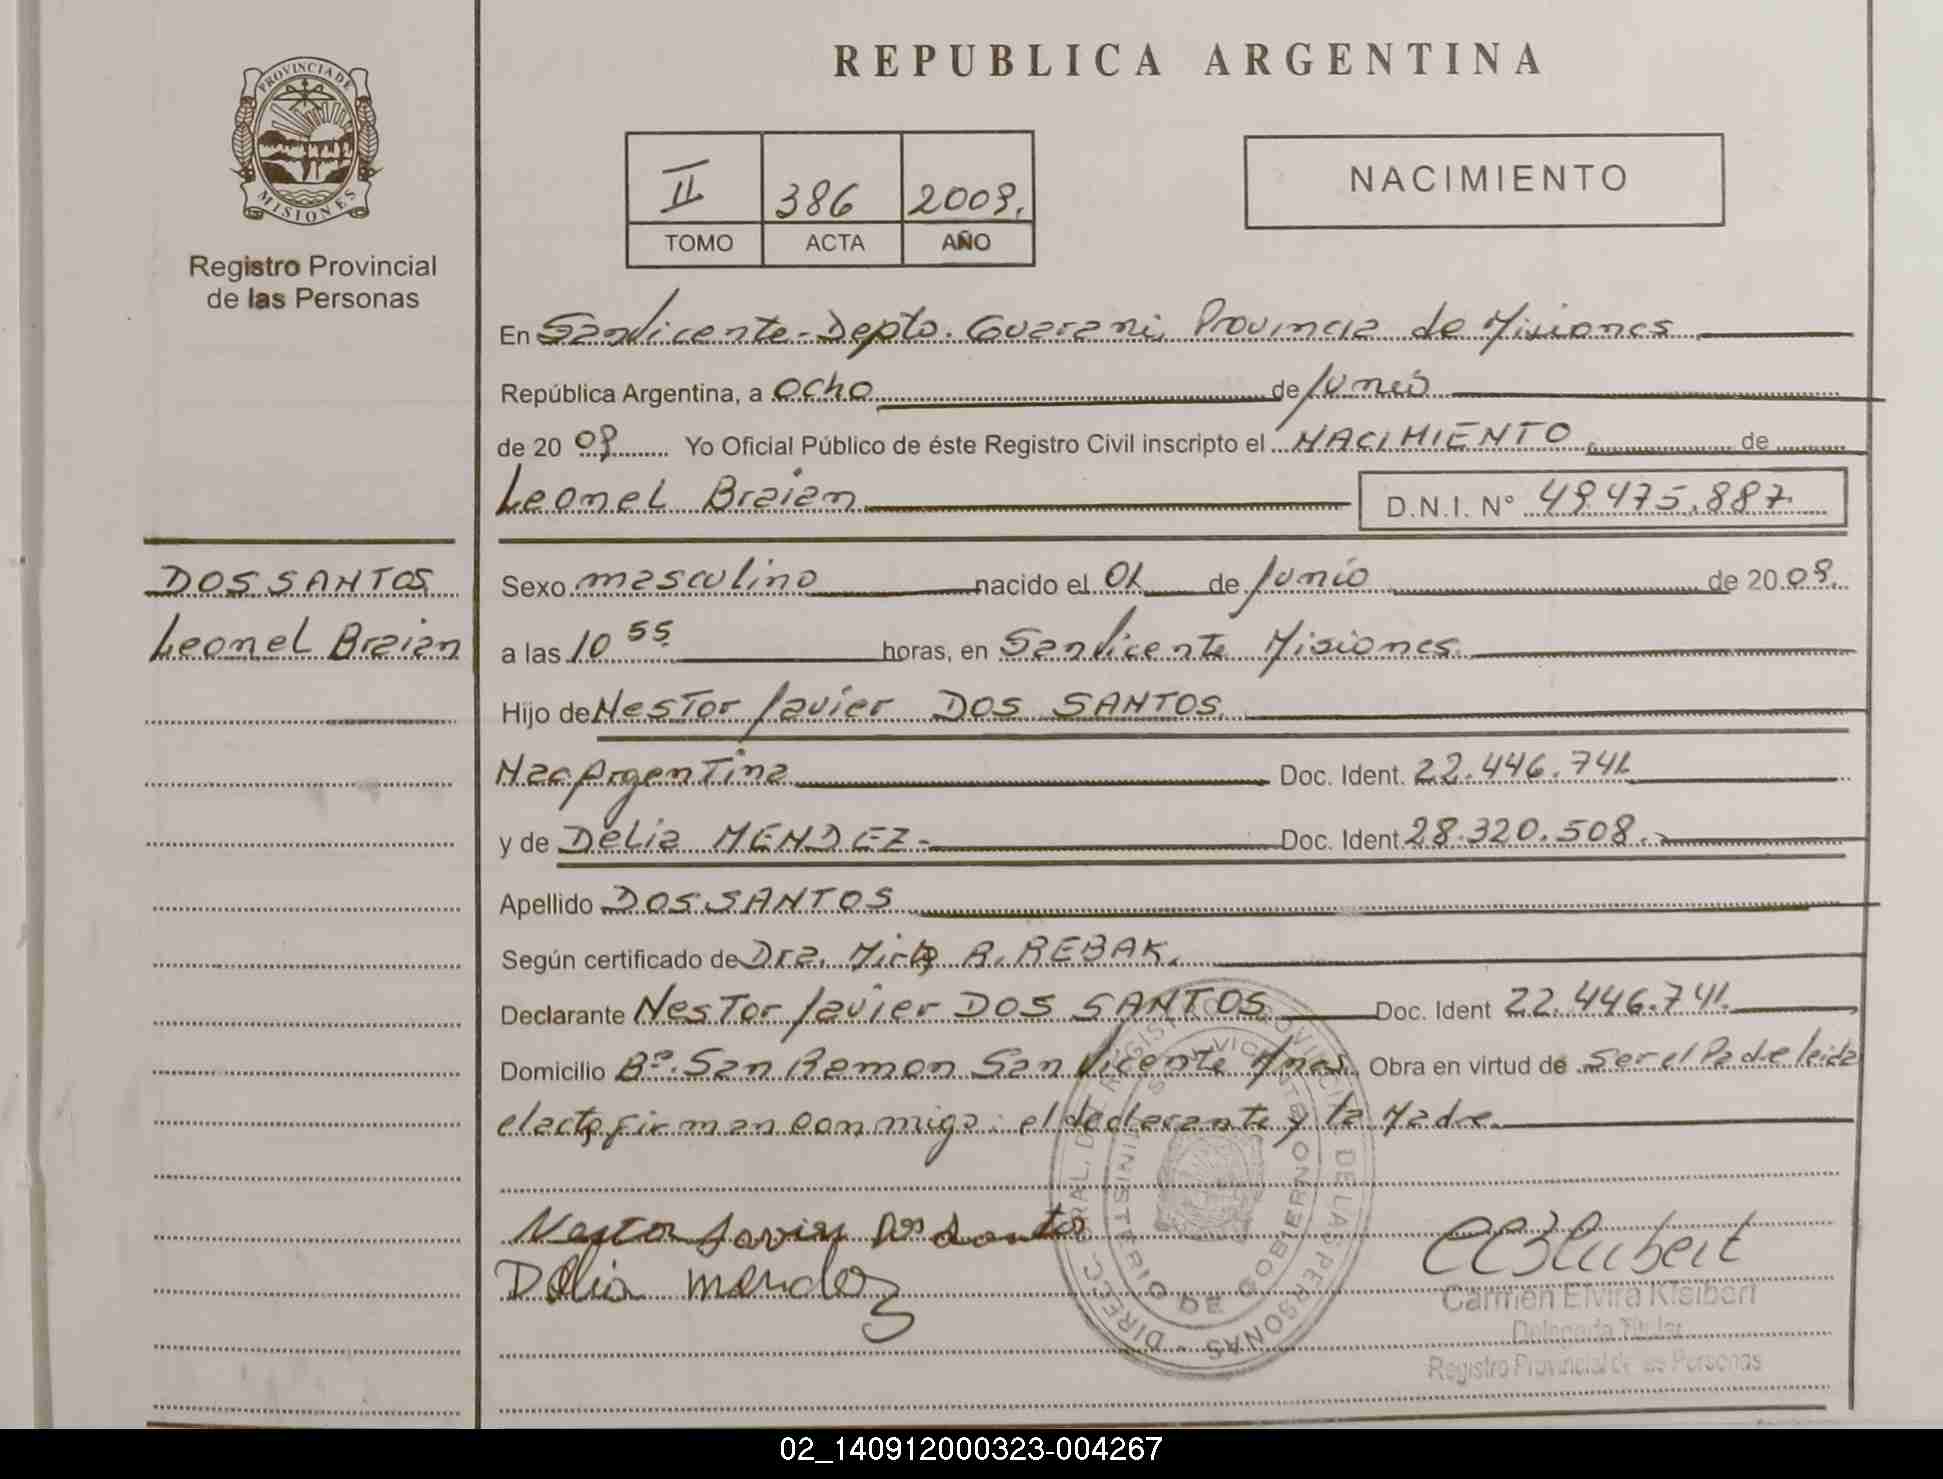 PROVINCIA DE
MISIONES
Registro Provincial
de las Personas
DOS SANTOS
Leonel Braian
REPUBLICA ARGENTINA
II 386 2009.
TOMO ACTA AÑO
NACIMIENTO
En San Vicente - Depto. Guarani, Provincia de Misiones
República Argentina, a ocho de Junio
de 20 09 Yo Oficial Público de éste Registro Civil inscripto el NACIMIENTO de
Leonel Braian D.N.I. Nº 49.475.887
Sexo masculino nacido el 01 de Junio de 20 09.
a las 10 55 horas, en San Vicente Misiones.
Hijo de Nestor Javier DOS SANTOS.
Nac Argentina Doc. Ident. 22.446.741
y de Delia MENDEZ.- Doc. Ident 28.320.508.-
Apellido DOS SANTOS
Según certificado de Dra. Mirta R. REBAK.
Declarante Nestor Javier DOS SANTOS Doc. Ident 22.446.741.
Domicilio Bº. San Ramon San Vicente Mnes. Obra en virtud de ser el Padre leida
el acta, firman conmigo: el declarante y la Madre.
Nestor Javier Dos Santos
Delia Mendez
Carmen Elvira Kleibert
Delegada Titular
Registro Provincial de las Personas
DIRECC. GRAL. DEL REGISTRO PROVINCIAL DE LAS PERSONAS
SAN VICENTE
MINISTERIO DE GOBIERNO
02_140912000323-004267